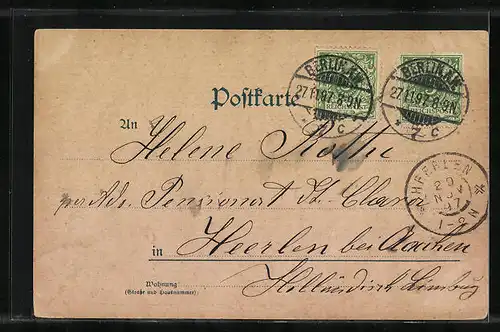 BERLIN
27.11.97.8-9N.
c
BERLIN
27.11.97.8-9N.
7. c
Postkarte
An
Helene
HEERLEN
29
NOV
97
1-2N
per Adr. Pensionat St. Clara
in Heerlen bei Aachen
Wohnung
(Straße und Hausnummer)
Holländisch Limburg